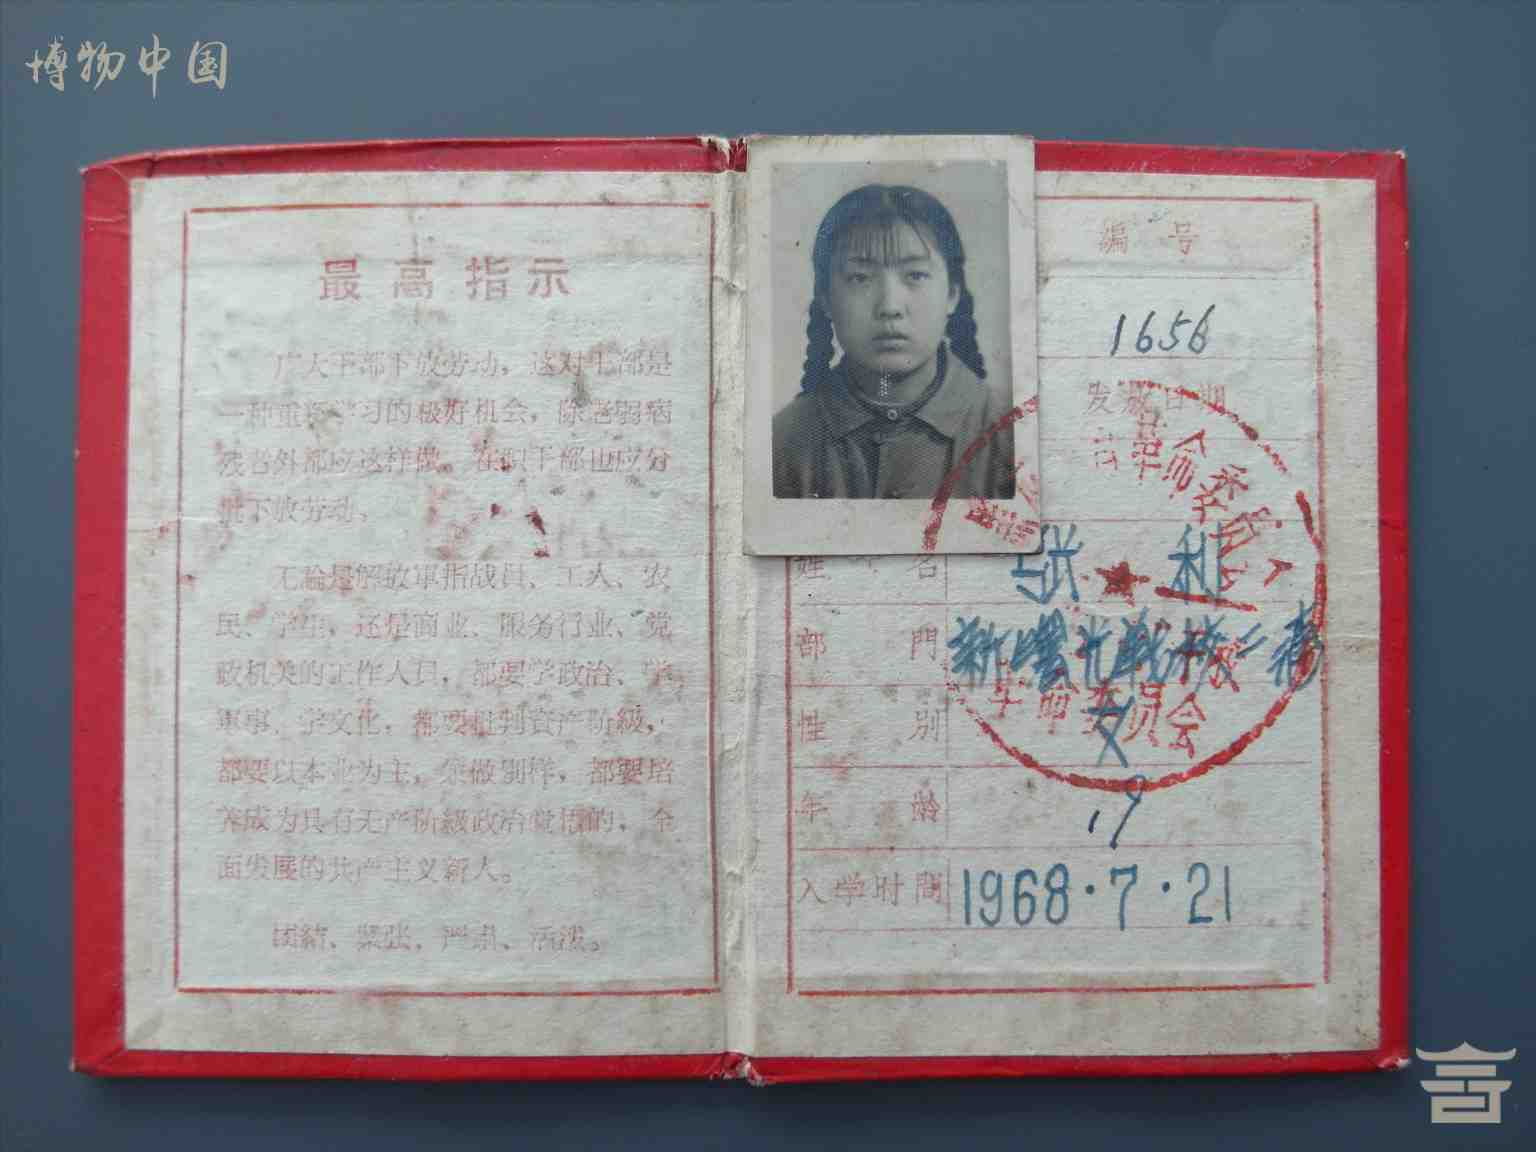 博物中国
最高指示
广大干部下放劳动，这对干部是
一种重新学习的极好机会，除老弱病
残者外都应这样做。在职干部也应分
批下放劳动。
无論是解放軍指战員、工人、农
民、学生，还是商业、服务行业、党
政机关的工作人員，都要学政治、学
軍事、学文化，都要批判資产阶級，
都要以本业为主，兼做别样，都要培
养成为具有无产阶級政治觉悟的，全
面发展的共产主义新人。
团結、緊张、严肃、活泼。
編号
1656
发证日期
革命委員会
姓名 张利
部門 新曙光戰校二
性別 女
年齡 19
入学时間 1968·7·21
革命委员会